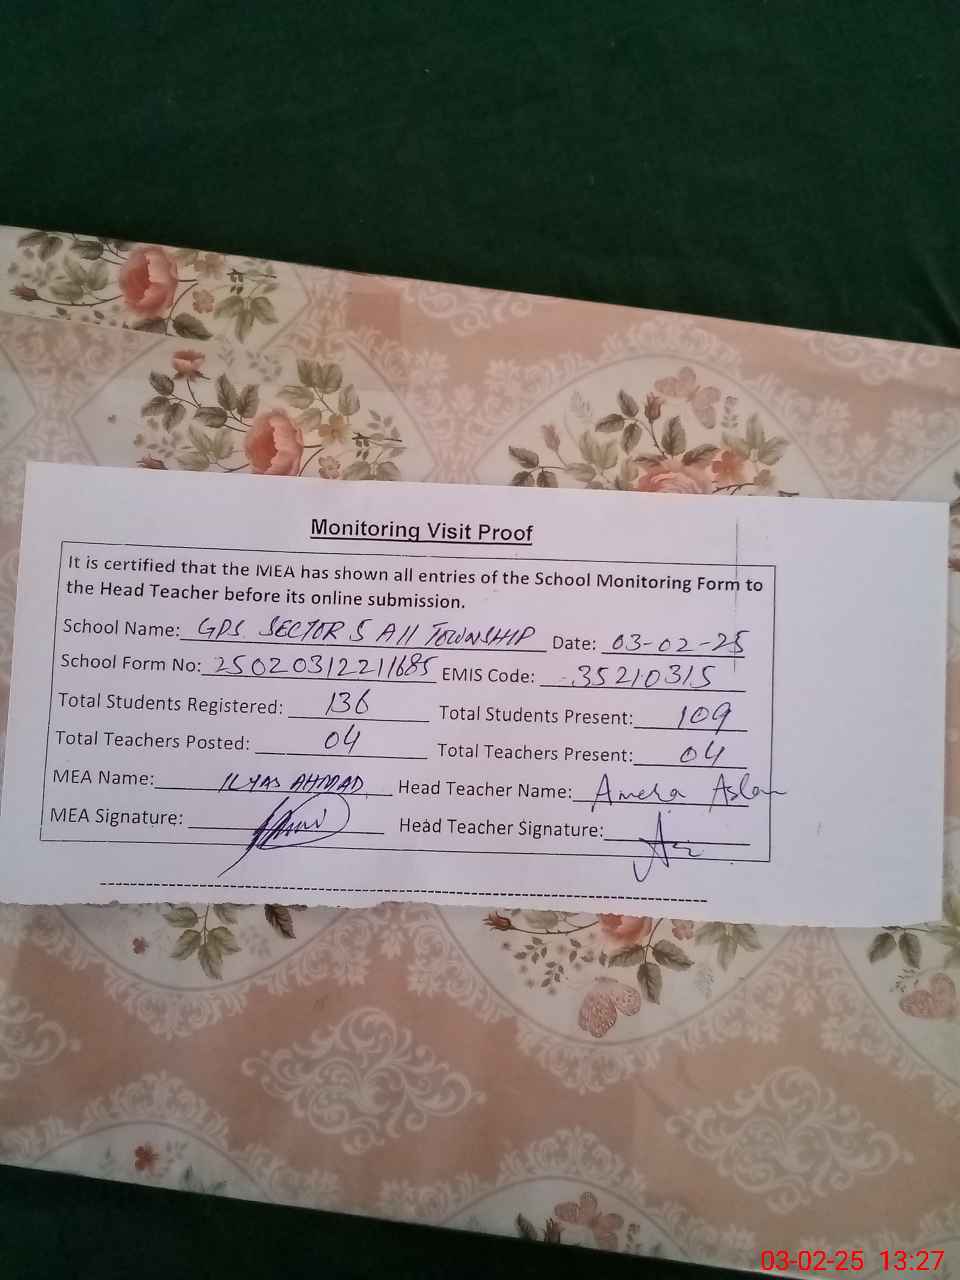 Monitoring Visit Proof
It is certified that the MEA has shown all entries of the School Monitoring Form to
the Head Teacher before its online submission.
School Name: GPS SECTOR 5 A II TOWNSHIP Date: 03-02-25
School Form No: 25020312211685 EMIS Code: 35210315
Total Students Registered: 136 Total Students Present: 109
Total Teachers Posted: 04 Total Teachers Present: 04
MEA Name: ILYAS AHMAD Head Teacher Name: Amera Aslam
MEA Signature: Head Teacher Signature:
03-02-25 13:27